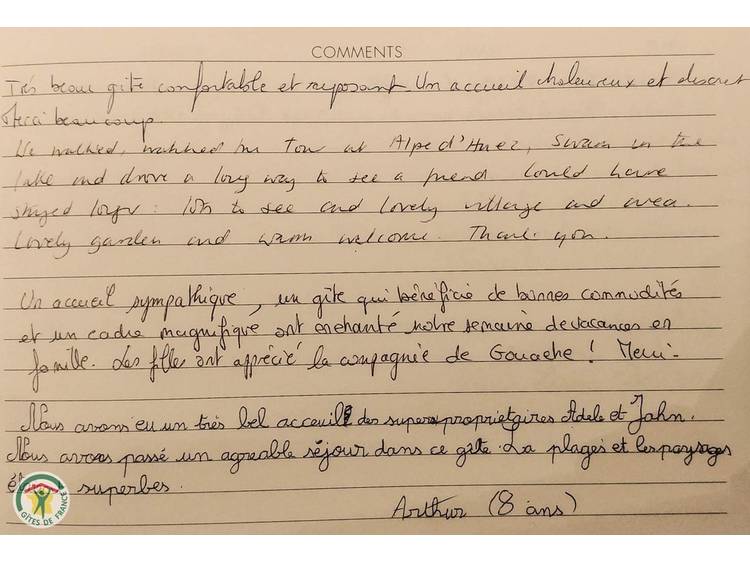 COMMENTS
Très beau gîte confortable et reposant. Un accueil chaleureux et discret
Merci beaucoup.
We walked, watched the Tour at Alpe d'Huez, swam in the
lake and drove a long way to see a friend. Could have
stayed longer : lots to see and lovely village and area.
Lovely garden and warm welcome. Thank you.
Un accueil sympathique, un gîte qui bénéficie de bonnes commodités
et un cadre magnifique ont enchanté notre semaine de vacances en
famille. Les filles ont apprécié la compagnie de Gouache ! Merci.
Nous avons eu un très bel acceuil des supers propriétaires Adele et John.
Nous avons passé un agreable séjour dans ce gîte. La plages et les paysages
superbes.
Arthur (8 ans)
GÎTES DE FRANCE